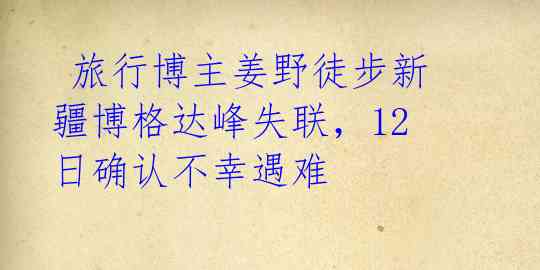 旅行博主姜野徒步新
疆博格达峰失联，12
日确认不幸遇难